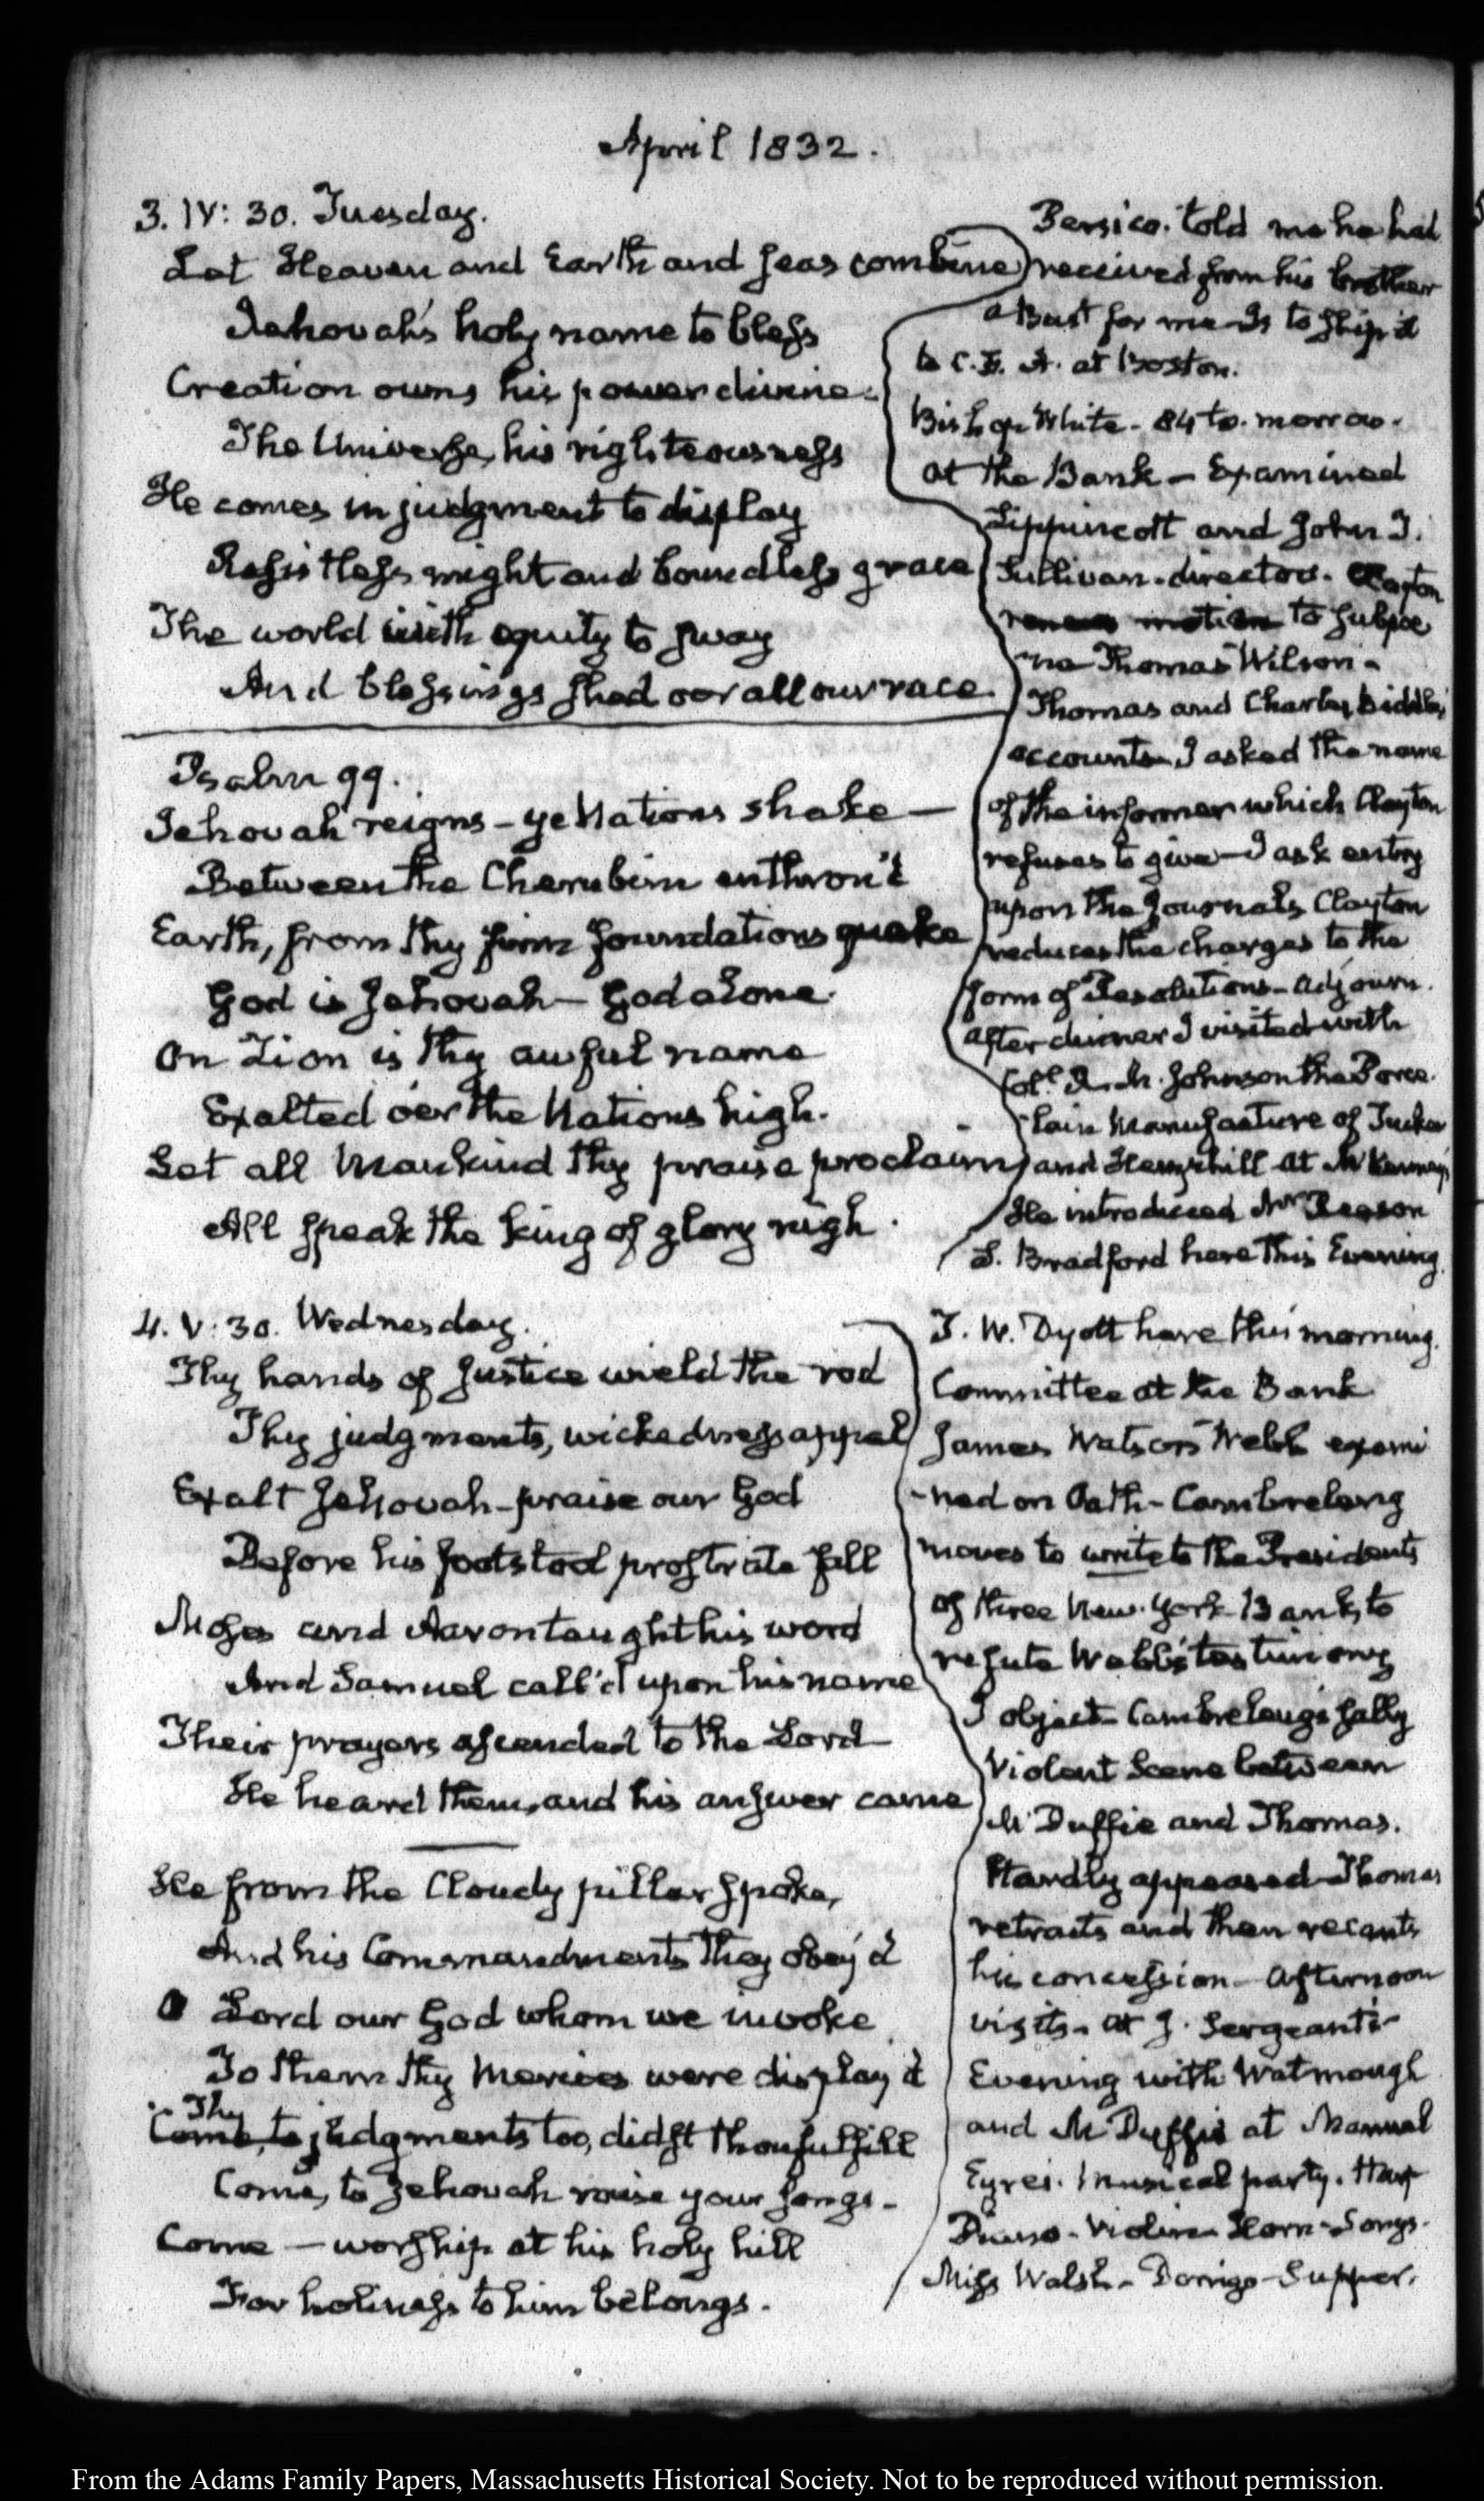 April 1832.
3. IV: 30. Tuesday.
Let Heaven and Earth and Seas combine
Jehovah's holy name to bless
Creation owns his power divine
The Universe, his righteousness
He comes in judgment to display
Resistless might and boundless grace
The world with equity to sway
And blessings shed oer all our race.
Psalm 99.
Jehovah reigns - ye Nations shake —
Between the Cherubim enthron'd
Earth, from thy firm foundations quake
God is Jehovah — God alone.
On Zion is thy awful name
Exalted o'er the Nations high.
Let all Mankind thy praise proclaim
All speak the King of glory nigh.
Persico. told me he had
received from his brother
a Bust for me to ship'd
to C. F. A. at Boston.
Bishop White - 84 to-morrow.
at the Bank - Examined
Lippincott and John T.
Sullivan - directors. Clayton
renews motion to subpoe
-na Thomas Wilson -
Thomas and Charles Biddle's
accounts - I asked the name
of the informer which Clayton
refuses to give - I ask entry
upon the Journals, Clayton
reduces the charges to the
form of Resolutions - adjourn.
After dinner I visited with
Col.l R. M. Johnson the Porce
-lain Manufacture of Tucker
and Hemphill - At McKenney's
He introduced
S. Bradford here this Evening.
4. V: 30. Wednesday.
Thy hands of Justice wield the rod
Thy judgments, wickedness appal
Exalt Jehovah - praise our God
Before his footstool prostrate fall
Moses and Aaron taught his word
And Samuel call'd upon his name
Their prayers ascended to the Lord
He heard them, and his answer came
He from the Cloudy pillar spoke,
And his Commandments they obey'd
O Lord our God whom we invoke
To them thy Mercies were display'd
Thy
Come, to judgments too, didst thou fulfill
Come, to Jehovah raise your songs -
Come — worship at his holy hill
For holiness to him belongs.
T. W. Dyott here this morning.
Committee at the Bank
James Watson Webb exami
-ned on Oath - Cambreleng
moves to write to the Presidents
of three New-York Banks, to
refute Webb's testimony
I object - Cambreleng's sally
Violent Scene between
McDuffie and Thomas.
Hardly appeased - Thomas
retracts and then recants
his concession - Afternoon
visits - at J. Sergeant's
Evening with Watmough
and McDuffie at Manual
Eyre's. Musical party. Harp
Piano - Violin - Horn - Songs -
Miss Walsh - Supper.
From the Adams Family Papers, Massachusetts Historical Society. Not to be reproduced without permission.